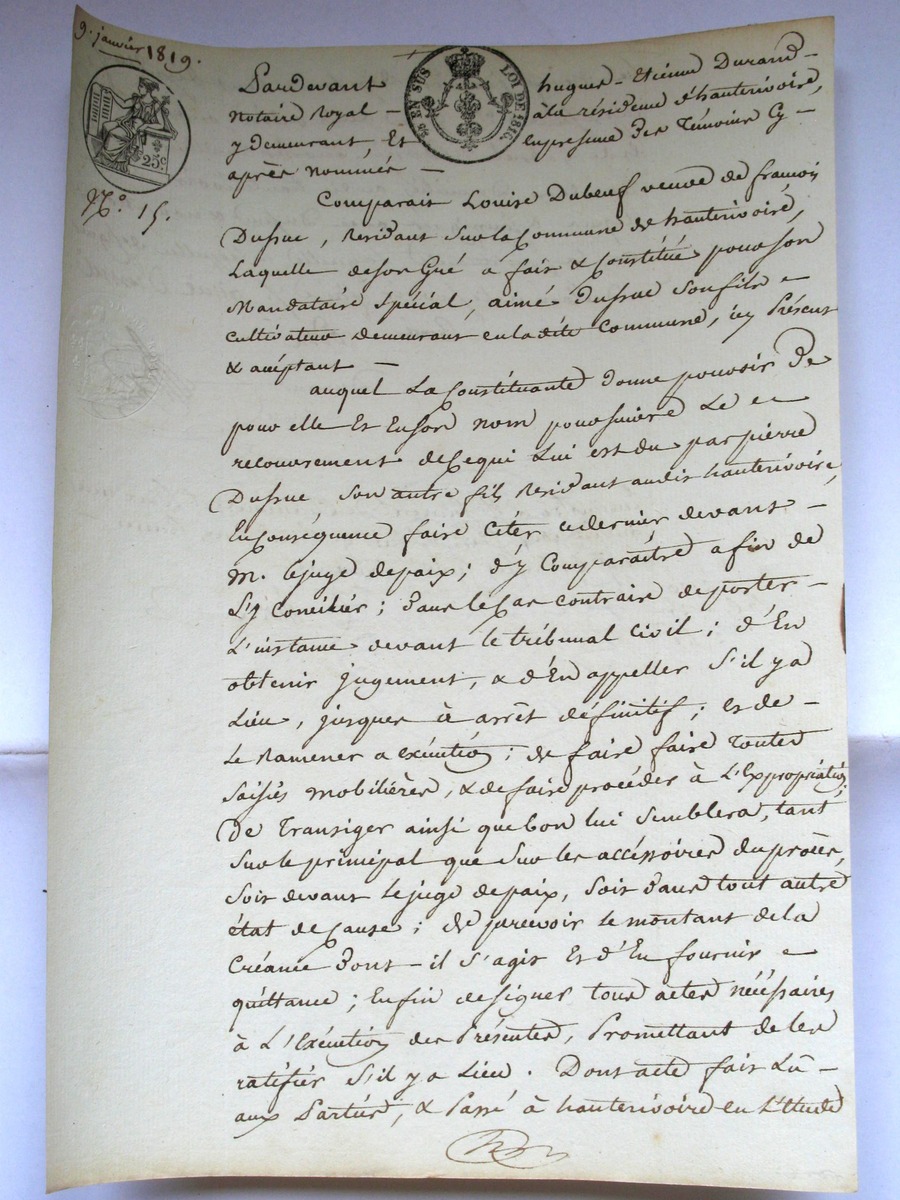 9. janvier 1819.
25 EN SUS LOI DE 1816.
25c.
N.° 15.
Pardevant hugues-Etienne Durand
notaire Royal à la résidence d'hauterivoire,
y demeurant, Et en presence des Témoins Cy
après nommés
Comparait Louise Dubeuf veuve de francois
Dussuc, Residant sur la Commune de hauterivoire,
Laquelle de son Gré a fait & Constitué pour son
Mandataire Spécial, aimé Dussuc son fils
cultivateur demeurant en ladite Commune, icy Présent
& acéptant
auquel La Constituante donne pouvoir de
pour elle Et En son nom poursuivre Le
recouvrement de Ce qui Lui est du par pierre
Dussuc, son autre fils Residant audit hauterivoire
En Conséquence faire Citer ce dernier devant
M. le juge de paix; d'y Comparaitre afin de
S'y Concilier; dans le Cas contraire de porter
L'instance devant le tribunal Civil; d'En
obtenir jugement, & d'En appeller S'il y a
Lieu, jusques à arrêt définitif; et de
Le Ramener a exécution; de faire faire toutes
Saisies mobilières, & de faire procéder à L'Expropriation;
De Transiger ainsi que bon lui Semblera, tant
Sur le principal que Sur les accéssoires du procès,
Soit devant Le juge de paix, Soit dans tout autre
état de Cause; de percevoir le montant de la
Créance dont il S'agit Et d'En fournir
quittance; Enfin de Signer tous actes nécéssaires
à L'Exécution des Présentes, Promettant de les
ratifier S'il y a Lieu. Dont acte fait Lû
aux Parties, & Passé à hauterivoire en L'Etude